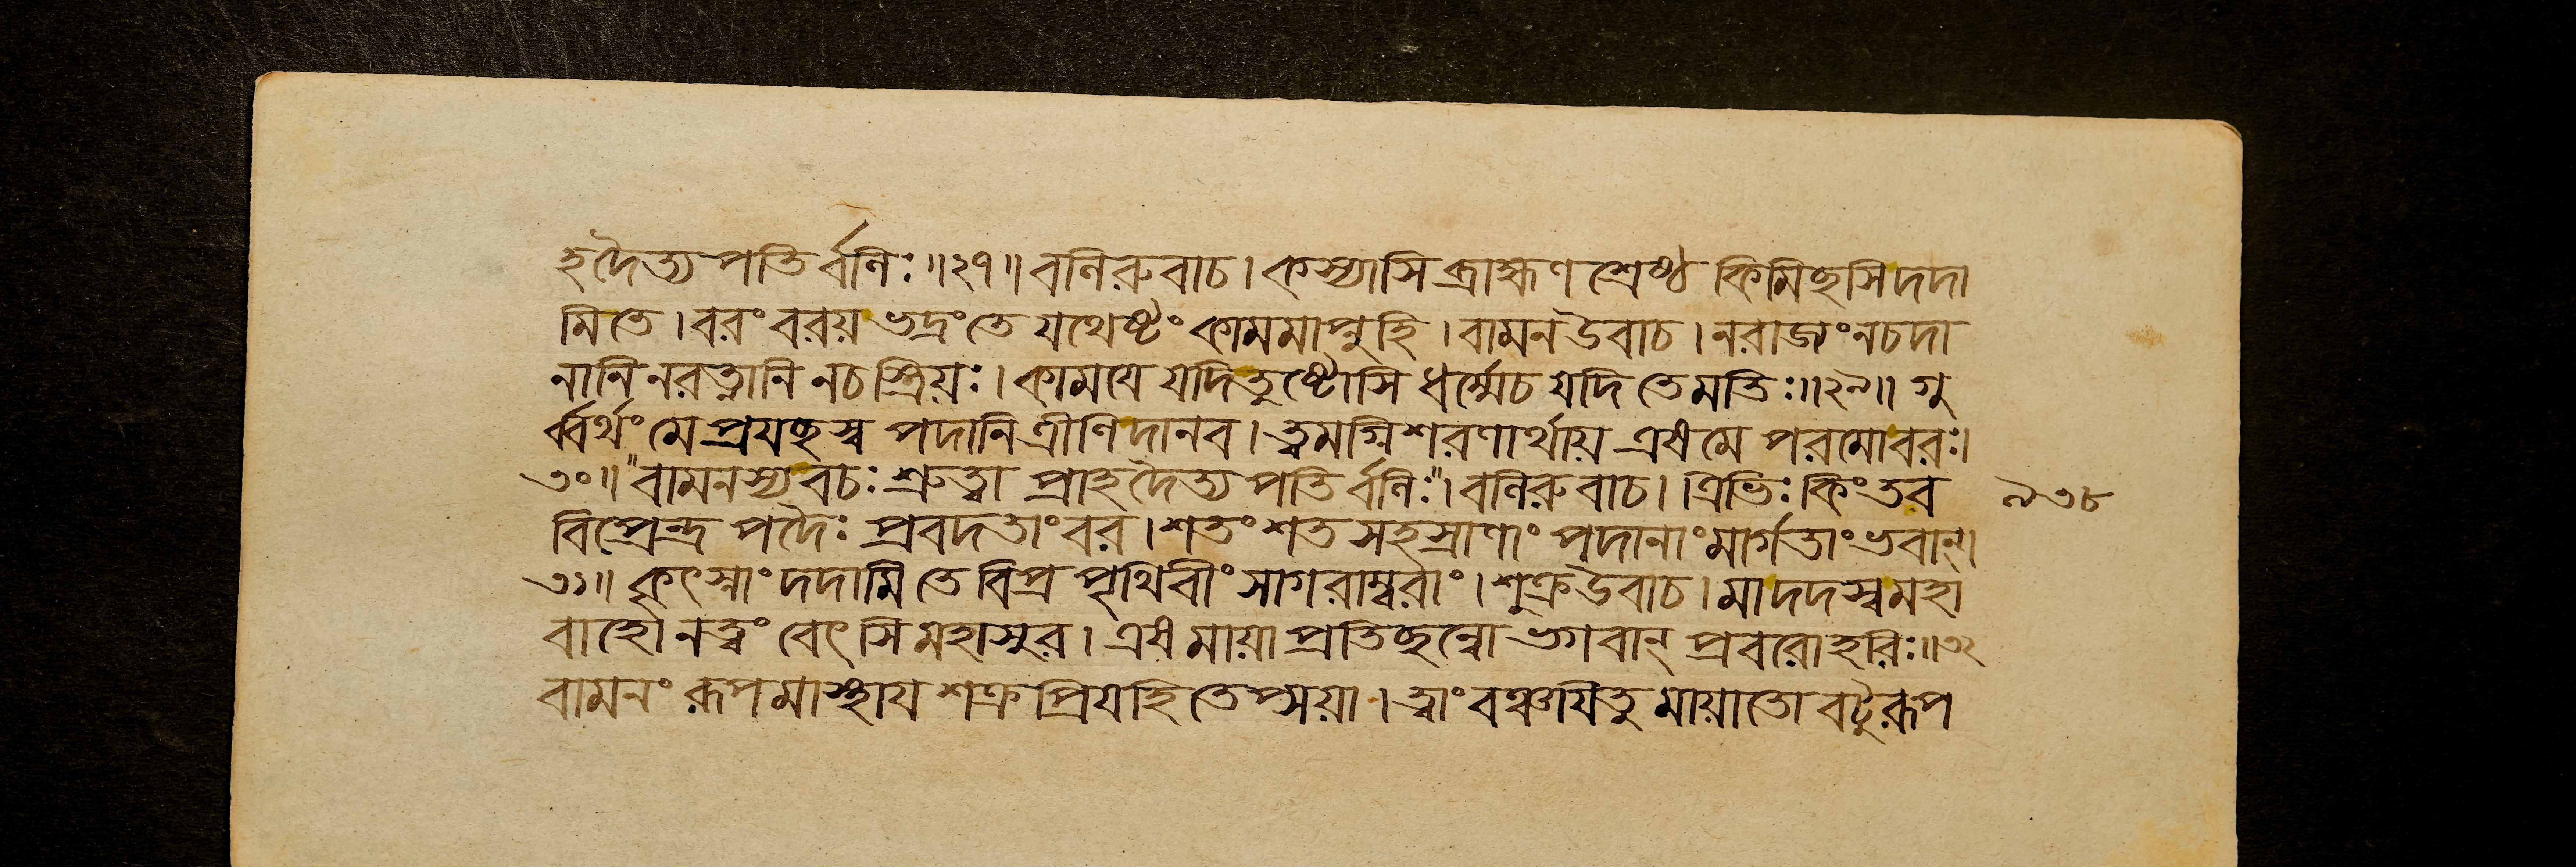 হদৈত্য পতির্বলিঃ॥২৭॥ বলিরুবাচ। কস্যাসি ব্রাহ্মণ শ্রেষ্ঠ কিমিছসি দদা
মি তে। বরং বরয় ভদ্রং তে যথেষ্টং কামমাপ্নুহি। বামন উবাচ। নরাজ্যং নচদা
নানি নরত্নানি নচ স্ত্রিয়ঃ। কাময়ে যদি তুষ্টোসি ধর্ম্মেচ যদি তে মতিঃ॥২৯॥ গু
র্ব্বর্থং মে প্রযছস্ব পদানি ত্রীণি দানব। ত্বমগ্নিশরণার্থায় এষ মে পরমোবরঃ।
৩০॥ "বামনস্য বচঃ শ্রুত্বা প্রাহ দৈত্য পতির্বলিঃ"। বলিরুবাচ। ত্রিভিঃ কিং তব
বিপ্রেন্দ্র পদৈঃ প্রবদতাং বর। শতং শত সহস্রাণাং পদানাং মার্গতাং ভবান্।
৩১॥ কৃৎস্নাং দদামি তে বিপ্র পৃথিবীং সাগরাম্বরাং। শুক্র উবাচ। মা দদস্ব মহা
বাহো নত্বং বেৎসি মহাসুর। এষ মায়া প্রতিছন্নো ভগবান্ প্রবরোহরিঃ॥৩২
বামনং রূপমাস্থায় শক্র প্রিয়হিতেপ্সয়া। ত্বাং বঞ্চয়িতুমায়াতো বটুরূপ
৯৩৮